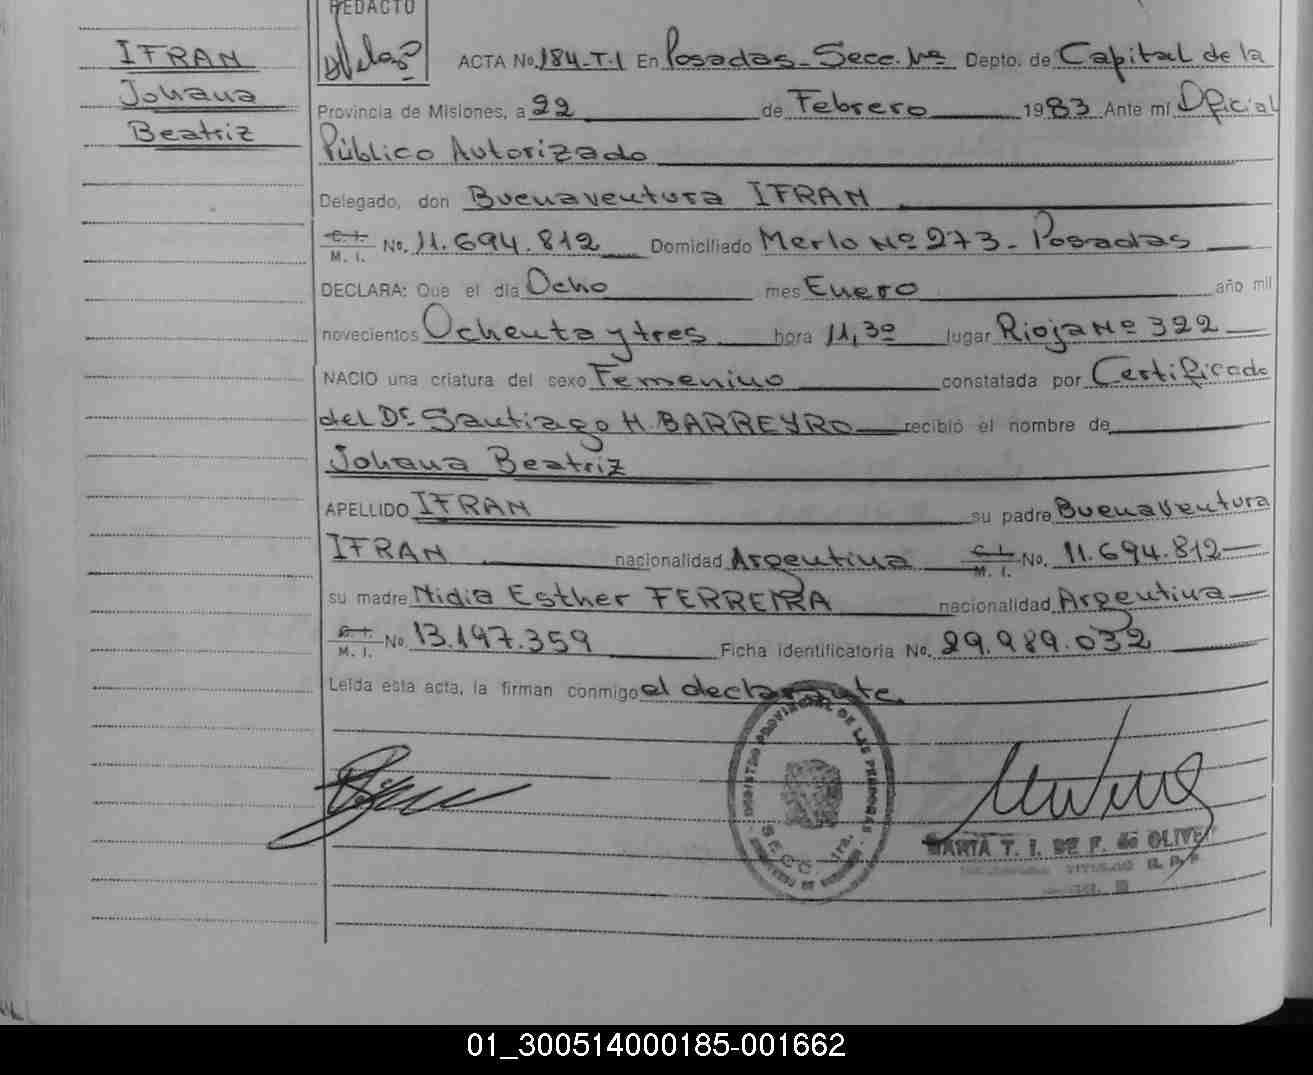 IFRAN
Johana
Beatriz
REDACTO
ACTA No. 184-T-1 En Posadas - Secc. 1ra Depto. de Capital de la
Provincia de Misiones, a 22 de Febrero 1983 Ante mí Oficial
Público Autorizado
Delegado, don Buenaventura IFRAN
C. I. M. I. No. 11.694.812 Domiciliado Merlo Nº 273 - Posadas
DECLARA: Que el día Ocho mes Enero año mil
novecientos Ochenta y tres hora 11,30 lugar Rioja Nº 322
NACIO una criatura del sexo Femenino constatada por Certificado
del Dr. Santiago H. BARREYRO recibió el nombre de
Johana Beatriz
APELLIDO IFRAN su padre Buenaventura
IFRAN nacionalidad Argentina C. I. M. I. No. 11.694.812
su madre Nidia Esther FERREIRA nacionalidad Argentina
C. I. M. I. No. 13.197.359 Ficha identificatoria No. 29.989.032
Leída esta acta, la firman conmigo el declarante.
REGISTRO PROVINCIAL DE LAS PERSONAS
SECC. 1ra.
MARTA T. I. DE F. de OLIVE
TITULAR R. P. P.
01_300514000185-001662